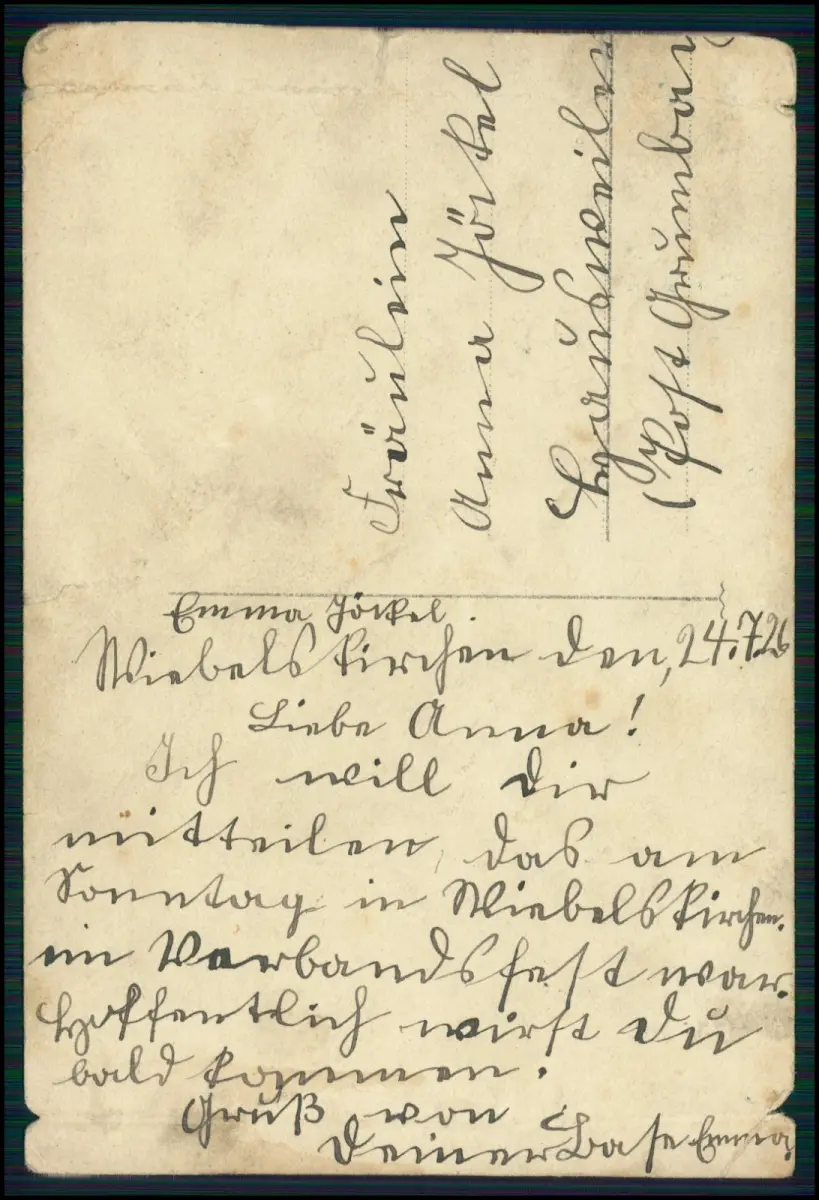 Fräulein
Anna Jöckel
Hausweiler
(Post Grumbac
Emma Jöckel.
Wiebelskirchen den, 24.7.26
Liebe Anna!
Ich will dir
mitteilen, das am
Sonntag in Wiebelskirchen.
im Verbandsfest war.
Hoffentlich wirst du
bald kommen.
Gruß von
deiner Base Emma.